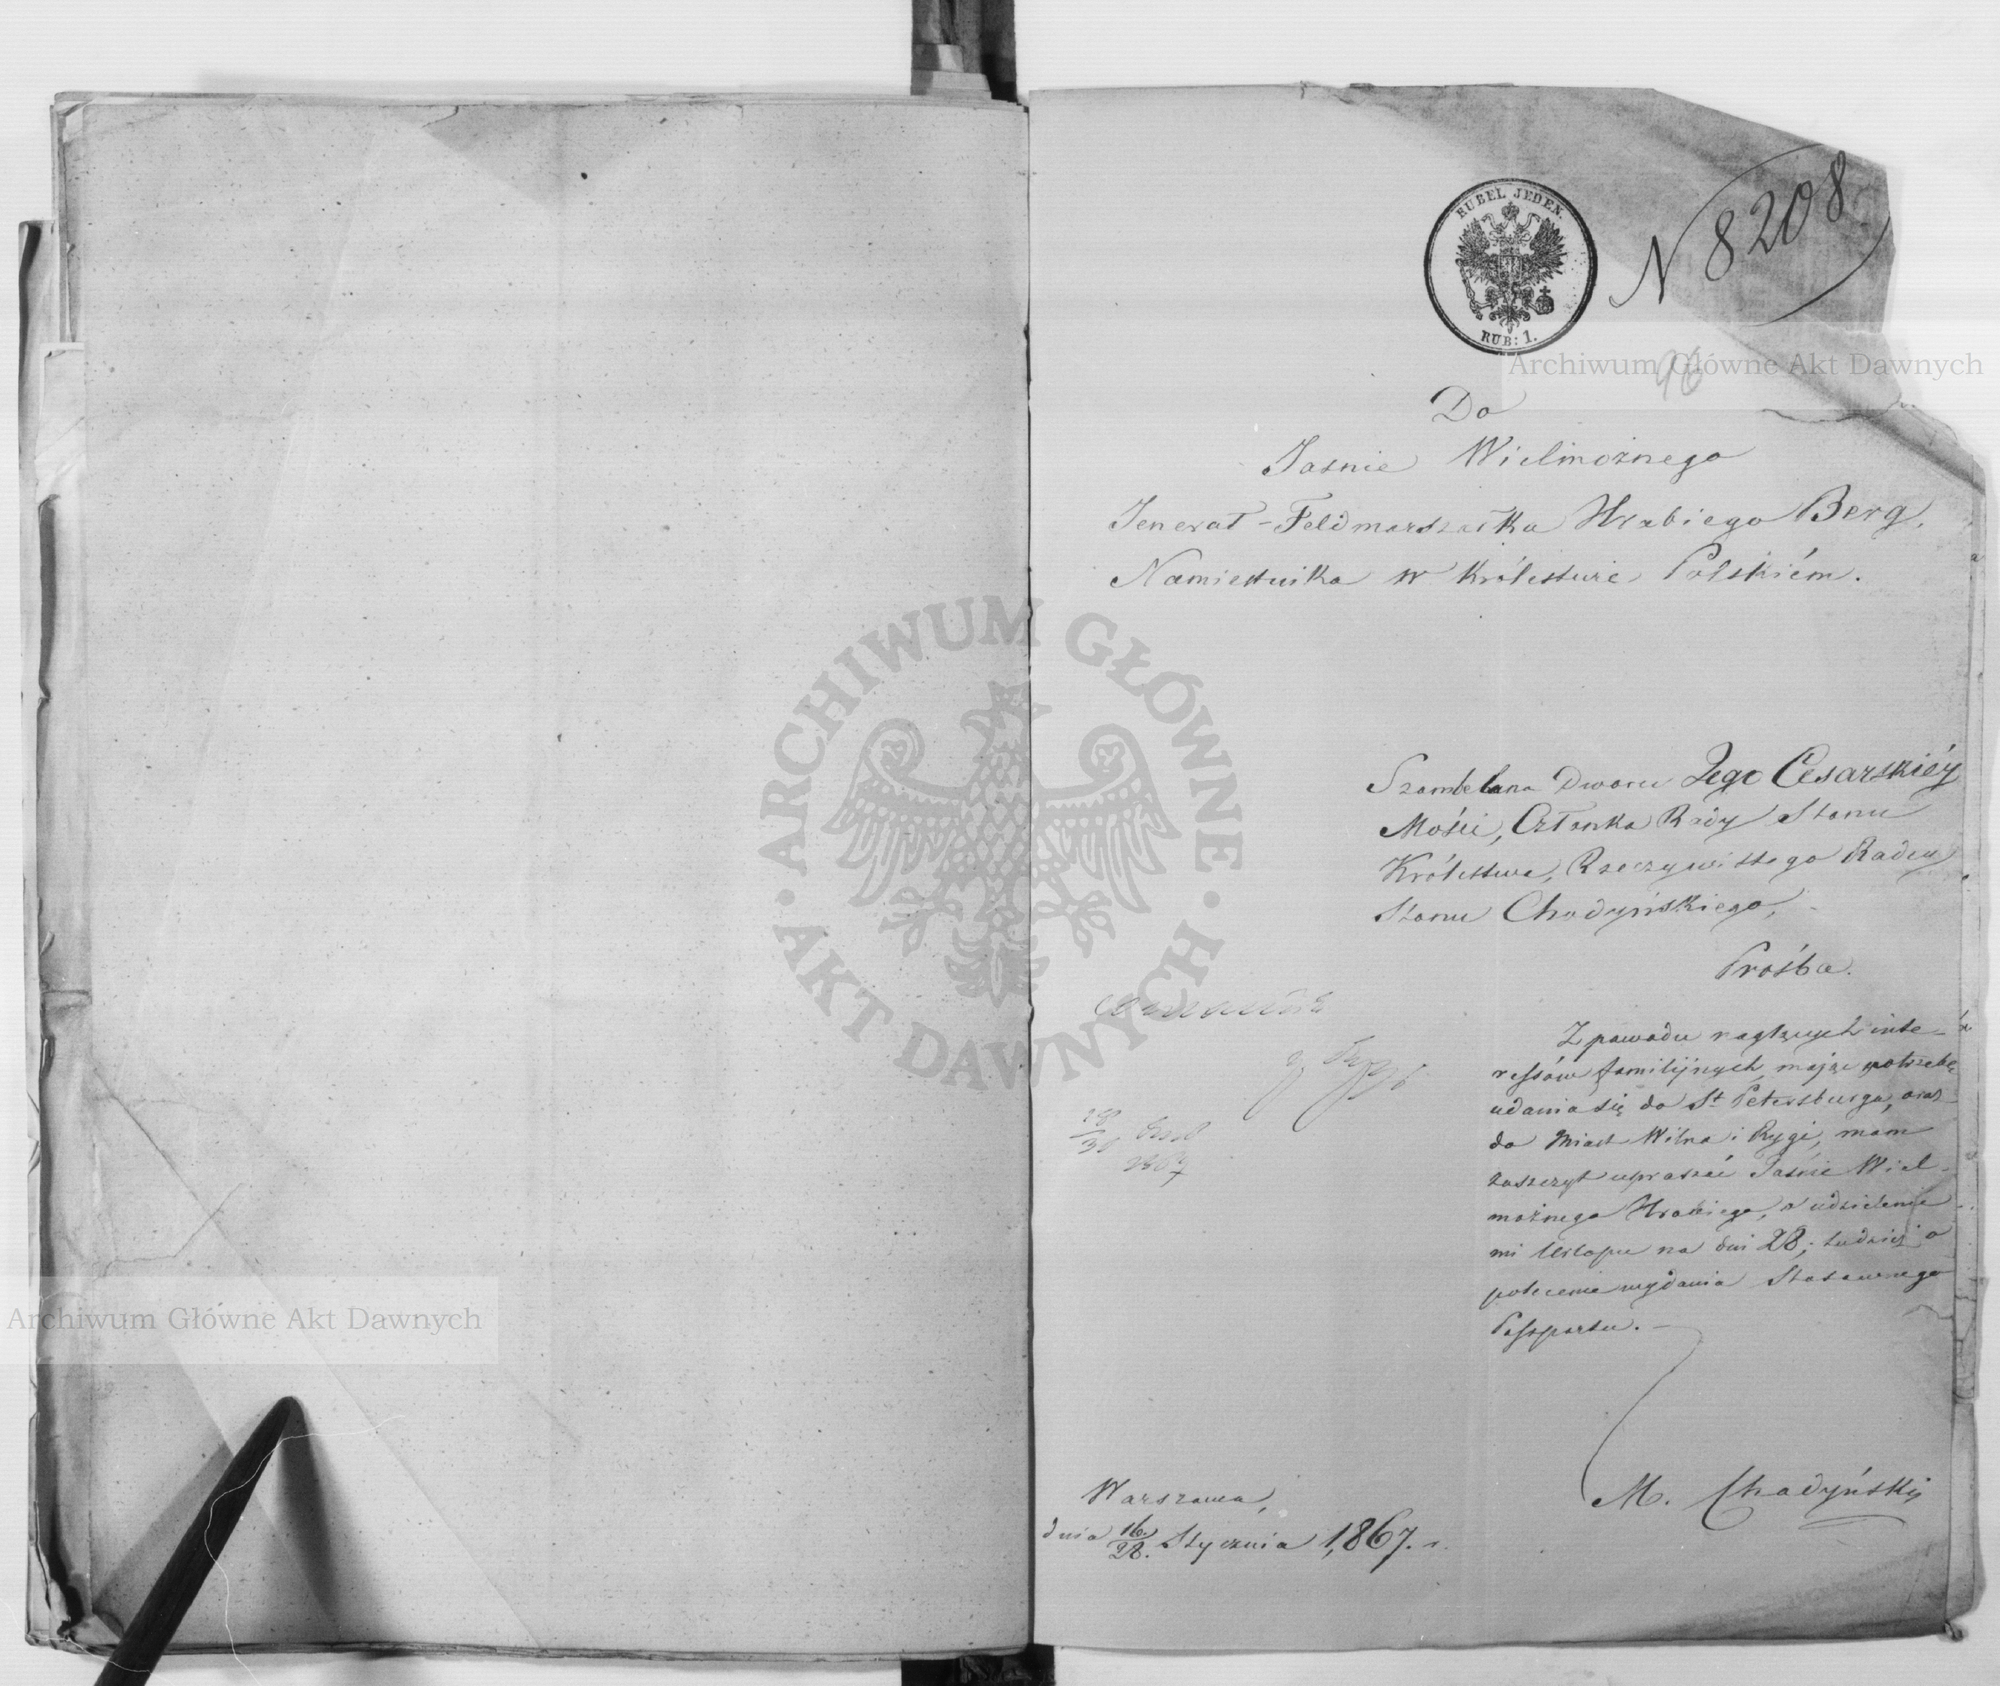 RUBEL JEDEN.
RUB: 1.
N 8208.
96
Archiwum Główne Akt Dawnych
Do
Jaśnie Wielmożnego
Jenerał-Feldmarszałka Hrabiego Berg,
Namiestnika w Królestwie Polskiém.
ARCHIWUM GŁÓWNE
AKT DAWNYCH
Szambelana Dworu Jego Cesarskiéj
Mości, Członka Rady Stanu
Królestwa, Rzeczywistego Radcy
Stanu Chodyńskiego,
Prośba.
Z powodu naglących inte-
ressów familijnych, mając potrzebę
udania się do St Petersburga, oraz
do Miast Wilna i Rygi, mam
zaszczyt upraszać Jaśnie Wiel-
możnego Hrabiego, o udzielenie
mi Urlopu na dni 28; tudzież o
polecenie wydania Stosownego
Passportu.
M. Chodyński
Warszawa,
dnia 16/28. Stycznia 1,867. r.
18/30
1867
Archiwum Główne Akt Dawnych